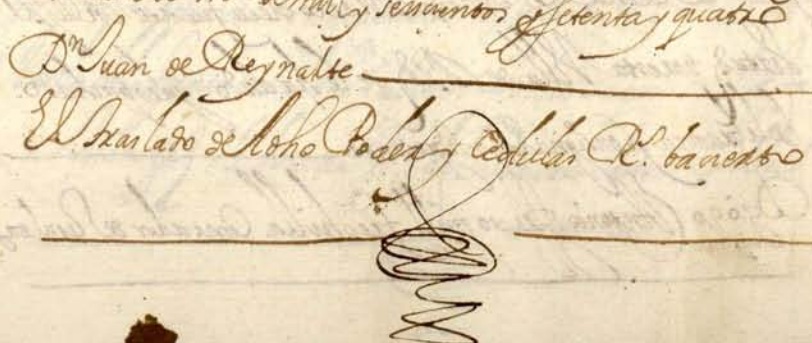 de mil y seiscientos y setenta y quatro
Dn Juan de Reynalte
El traslado de dho Poder y Cedulas Rs. ba cierto